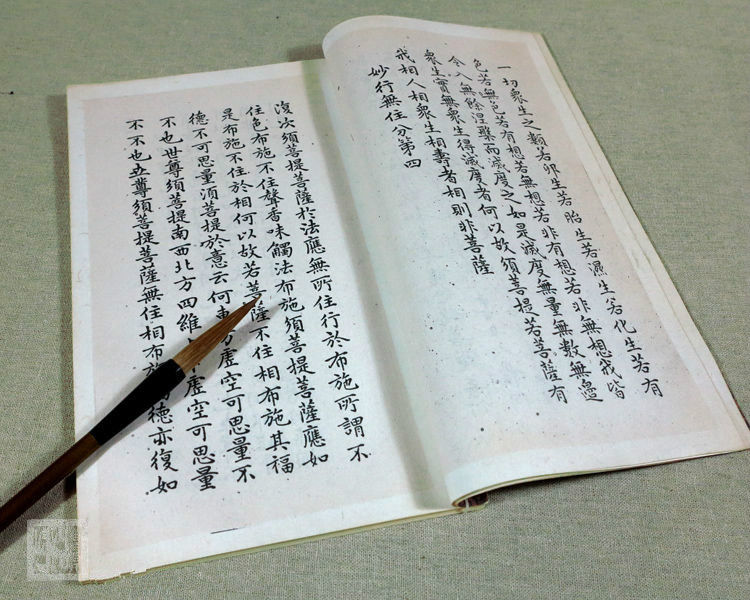 一切衆生之類若卵生若胎生若濕生若化生若有
色若無色若有想若無想若非有想若非無想我皆
令入無餘涅槃而滅度之如是滅度無量無數無邊
衆生實無衆生得滅度者何以故須菩提若菩薩有
我相人相衆生相壽者相則非菩薩
妙行無住分第四
復次須菩提菩薩於法應無所住行於布施所謂不
住色布施不住聲香味觸法布施須菩提菩薩應如
是布施不住於相何以故若菩薩不住相布施其福
德不可思量須菩提於意云何東方虛空可思量不
不也世尊須菩提南西北方四維虛空可思量
不不也世尊須菩提菩薩無住相布施德亦復如